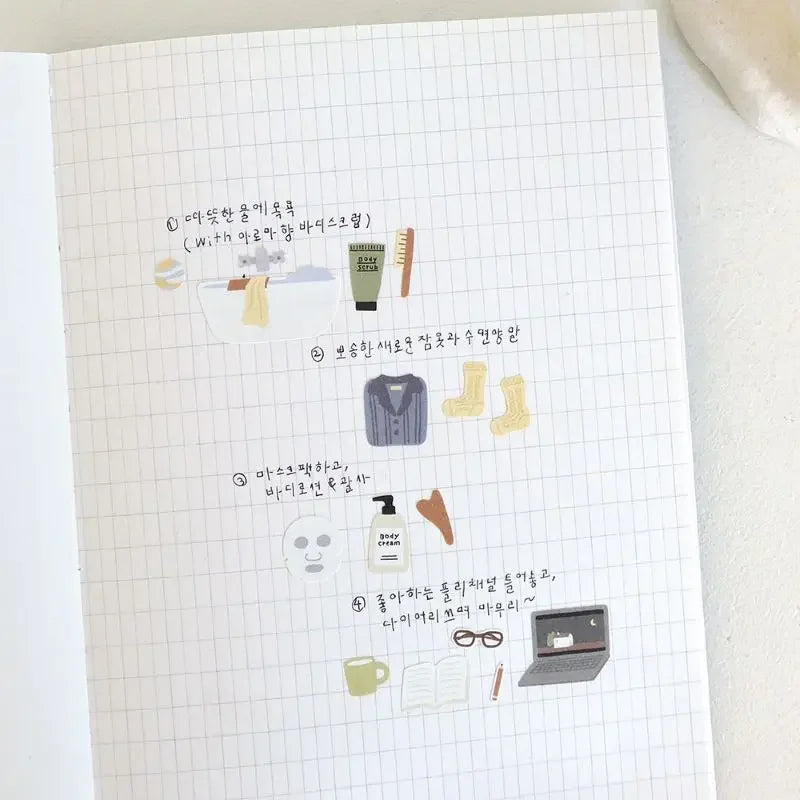 ① 따뜻한 물에 목욕
(With 아로마향 바디스크럽)
Body
Scrub
② 뽀송한 새로운 잠옷과 수면양말
③ 마스크팩하고,
바디로션 & 괄사
Body
Cream
④ 좋아하는 플리/채널 틀어놓고,
다이어리 쓰며 마무리~